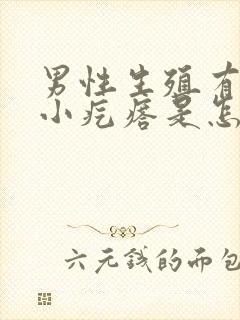 男性生殖有
小疙瘩是怎
六元钱的面包